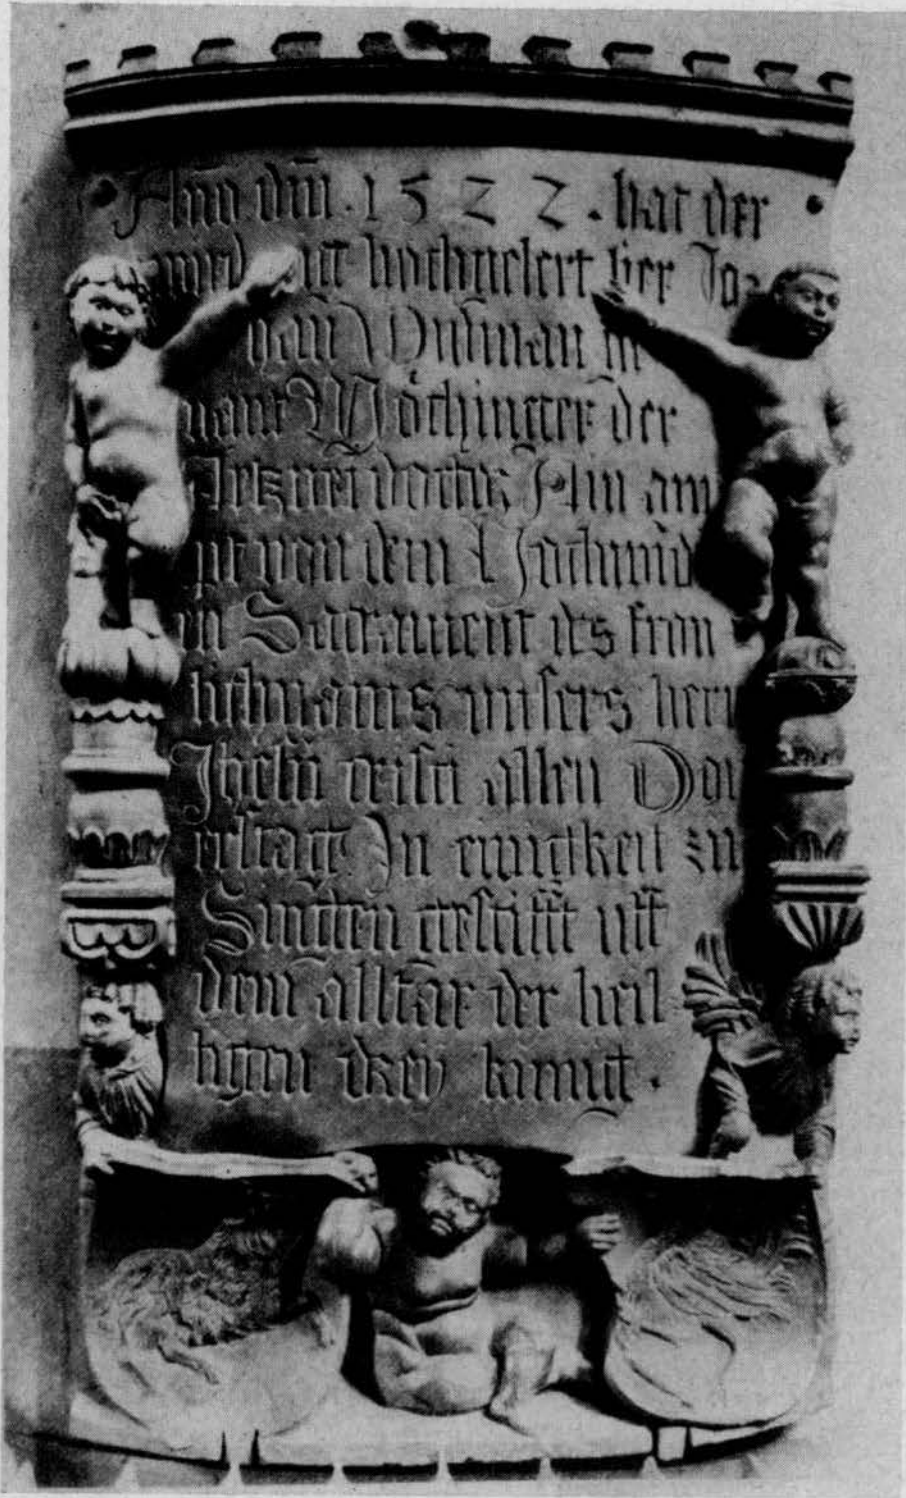 Añо dm̄ · 1522 · hat der
wird hochgelert her Jo
han Wysman ge
nant Möchinger der
Artznei doctor Ain am
pt von dem Hochwird
en Sacrament des fron
lichnams unsers hern
Jhesu cristi allen Don
erstag In ewigkeit zu
Singen gestifft uff
dem alltar der heil
ligen dreÿ kūnig ·